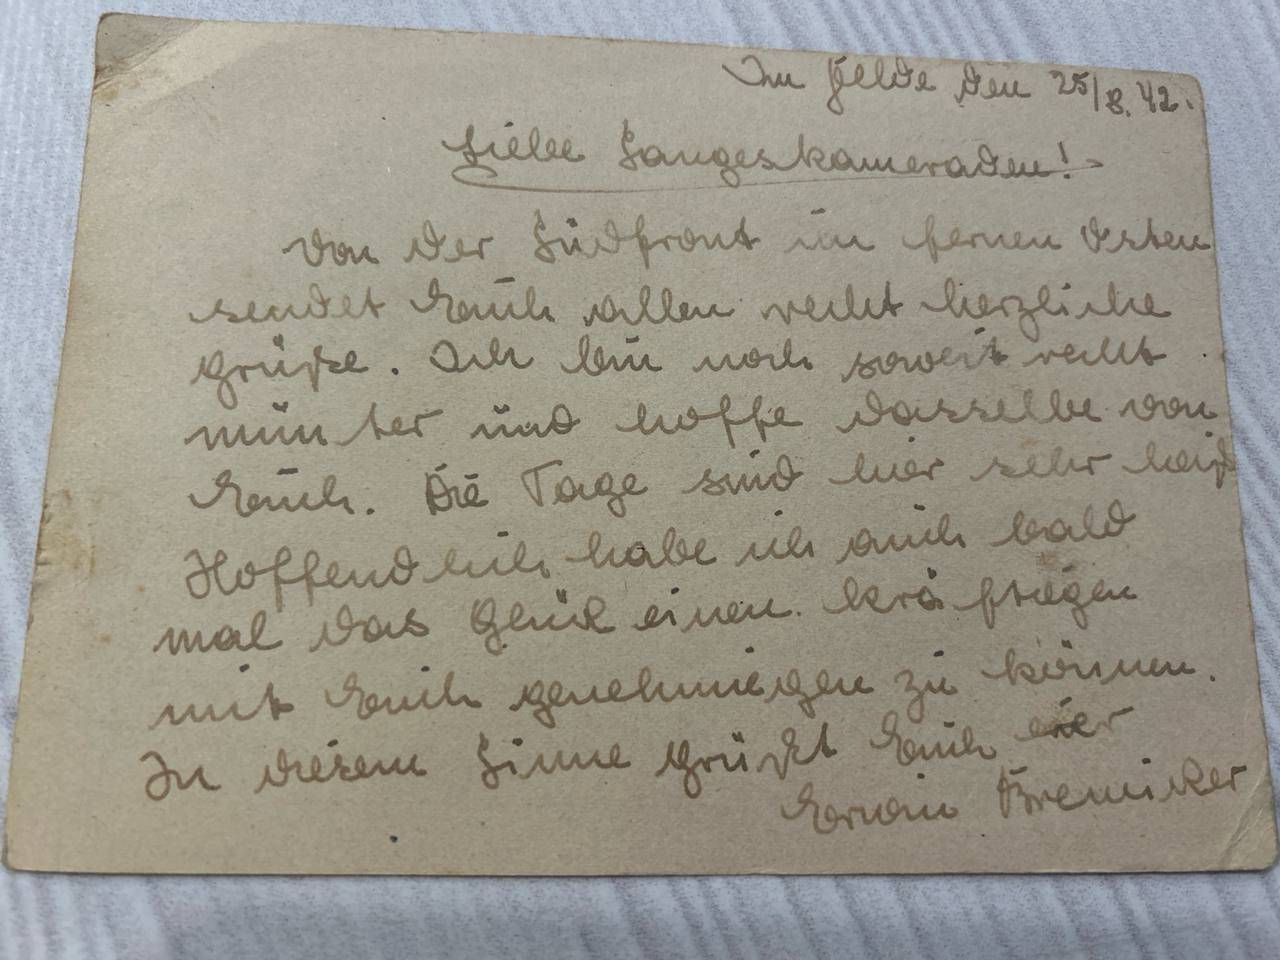 Im Felde den 25/8. 42.
Liebe Sangeskameraden!
Von der Südfront im fernen Osten
sendet Euch allen recht herzliche
Grüße. Ich bin noch soweit recht
munter und hoffe dasselbe von
Euch. Die Tage sind hier sehr heiß
Hoffendlich habe ich auch bald
mal das Glück einen kräftiegen
mit Euch genehmiegen zu können.
In diesem Sinne Grüßt Euch eier
Erwin Bremicker